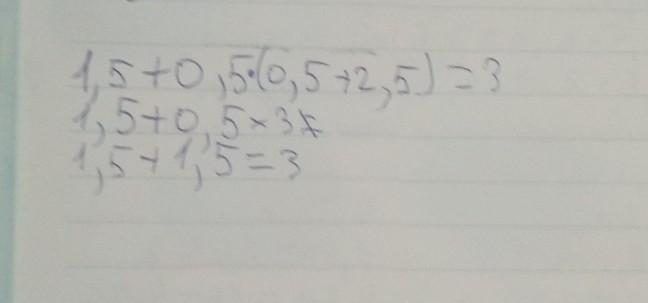 1,5+0,5·(0,5+2,5)=3
1,5+0,5×3=
1,5+1,5=3